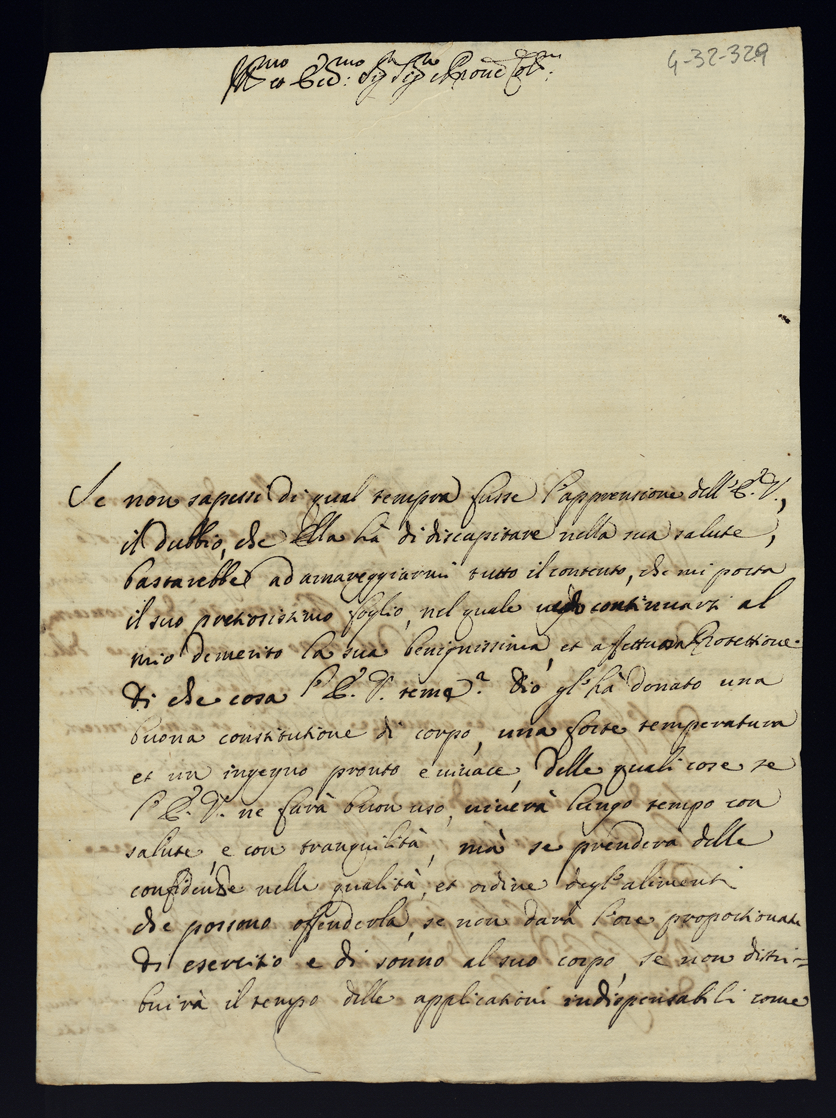 4-32-329
Ill.mo et Ecc.mo Sig.r Sig.r e Prone Col.mo
Se non sapessi di qual tempra fusse l'apprensione dell'E. V.,
il dubbio, che Ella hà di discapitare nella sua salute,
bastarebbe ad amareggiarmi tutto il contento, che mi porta
il suo pretiosissimo foglio, nel quale vedo continuarsi al
mio demerito la sua benignissima, et affettuosa Protettione.
Di che cosa l'E. V. teme? Dio gl'hà donato una
buona constitutione di corpo, una forte temperatura
et un ingegno pronto e vivace, delle quali cose se
l'E. V. ne farà buon uso, viverà lungo tempo con
salute, e con tranquilità, mà se prenderà delle
confidenze nelle qualità, et ordine degl'alimenti
che possono offenderla, se non darà l'ore proportionate
di esercitio e di sonno al suo corpo, se non distri=
buirà il tempo delle applicationi indispensabili come